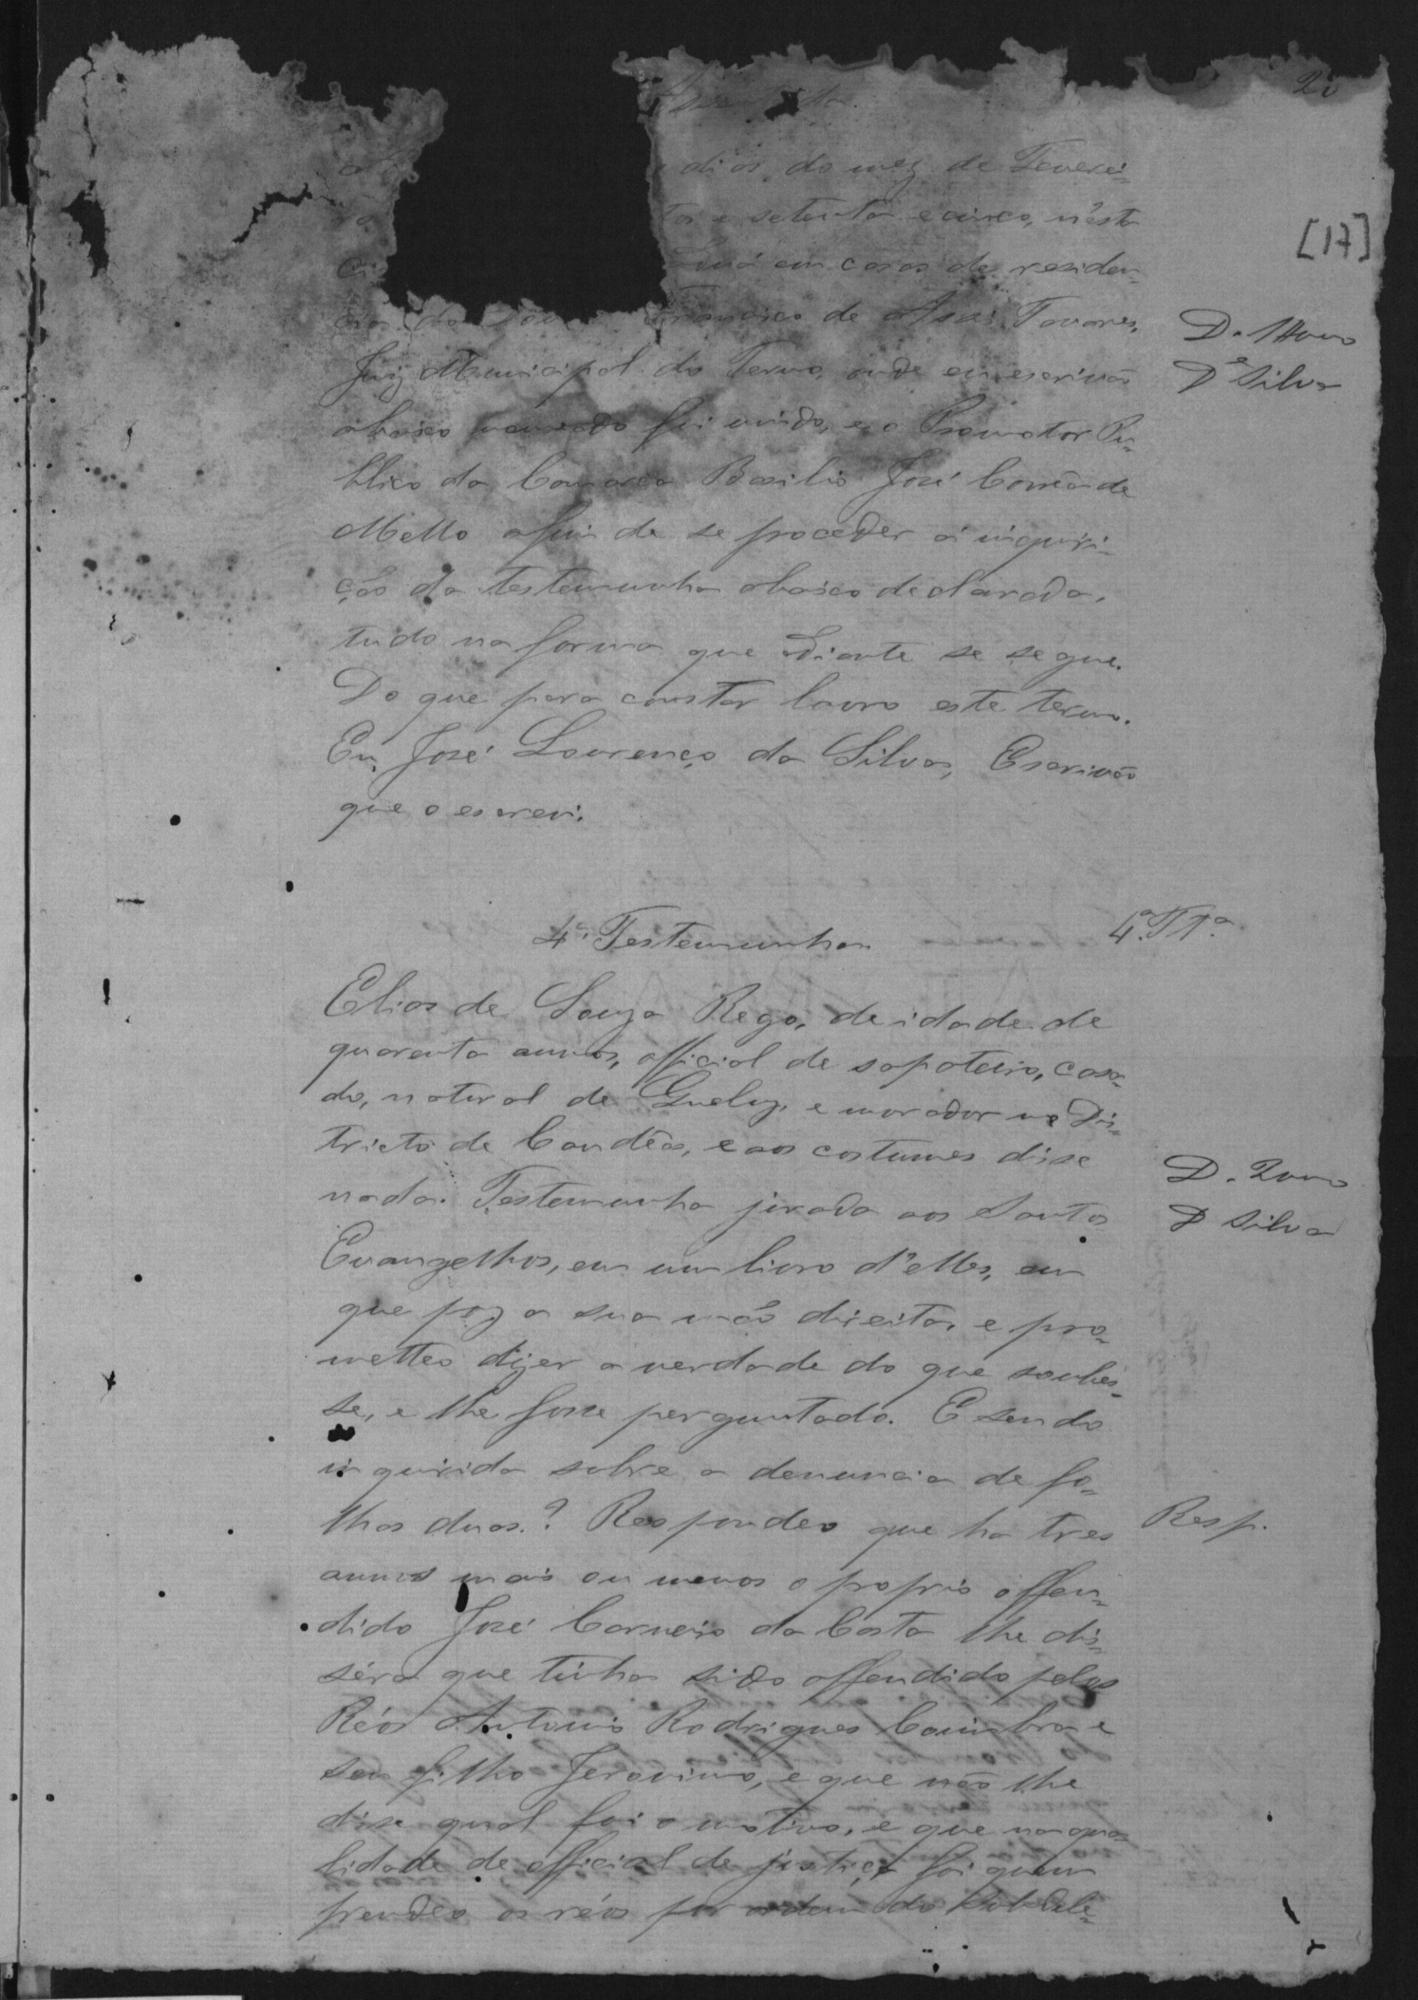 20
[17]
dias do mez de Feverei-
e setenta e cinco, n'esta
em casas de residen-
Francisco de Assis Tavares,
Juiz Municipal do Termo, onde eu escrivão
abaixo nomeado fui vindo, e o Promotor Pu-
blico da Comarca Basilio José Corrêa de
Mello afim de se proceder á inquiri-
ção da testemunha abaixo declarada,
tudo na forma que adiante se segue.
Do que para constar lavro este termo.
Eu, José Lourenço da Silva, Escrivão
que o escrevi.
D. Silva
4ª Testemunha
4ª Tª
Elias de Souza Rego, de idade de
quarenta annos, official de sapateiro, casa-
do, natural de Queluz, e morador no Dis-
tricto de Candêas, e aos costumes disse
nada. Testemunha jurada aos Santos
Evangelhos, em um livro d'elles, em
que poz a sua mão direita, e pro-
metteo dizer a verdade do que soubes-
se, e lhe fosse perguntado. E sendo
inquirida sobre a denuncia de fo-
lhas duas? Respondeo que ha tres
annos mais ou menos o proprio offen-
dido José Carneiro da Costa lhe dis-
séra que tinha sido offendido pelos
Réos Antonio Rodrigues Coimbra e
seu filho Jeronimo, e que não lhe
disse qual foi o motivo, e que na qua-
lidade de official de justiça foi quem
prendeo os réos por ordem do Subdele-
D. Silva
Resp.